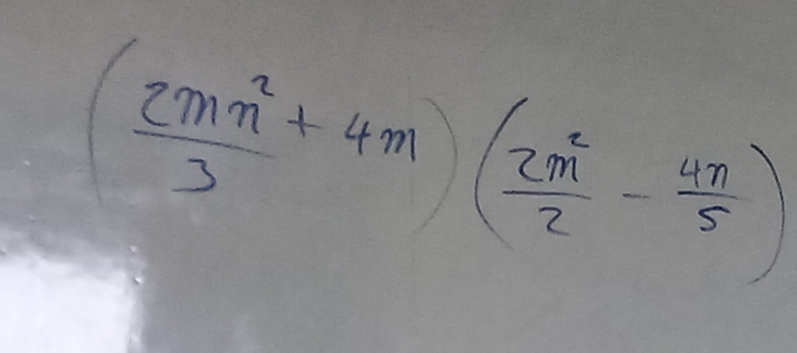 (2mn²/3 + 4m)(2m²/2 - 4n/5)